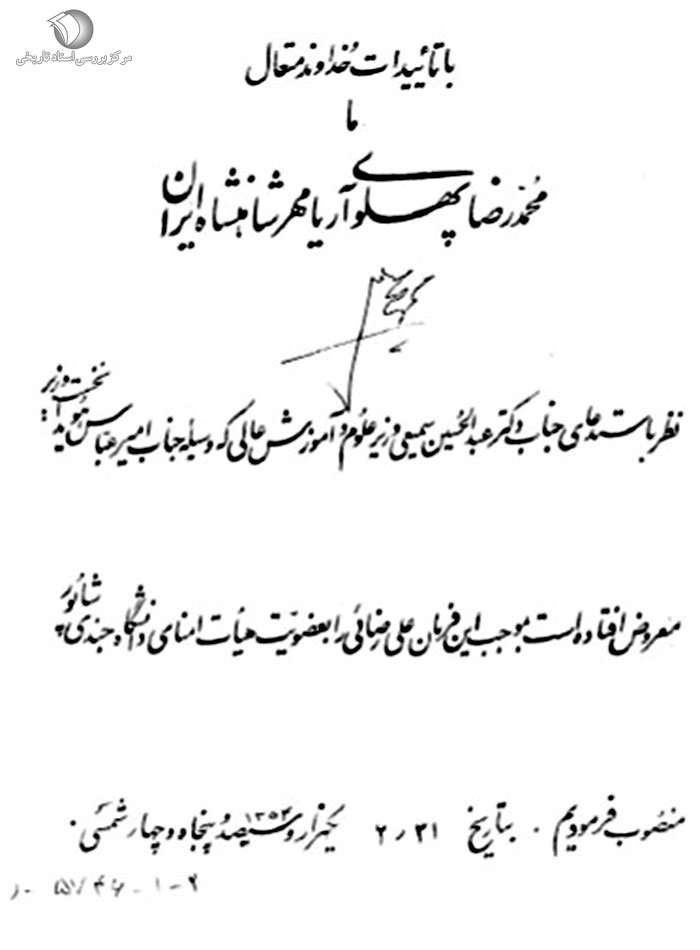 مرکز بررسی اسناد تاریخی
با تأییدات خداوند متعال
ما
محمدرضا پهلوی آریامهر شاهنشاه ایران
نظر باستدعای جناب دکتر عبدالحسین سمیعی وزیر علوم و آموزش عالی که وسیله جناب امیر عباس هویدا نخست وزیر
معروض افتاده است بموجب این فرمان علی رضائی را بعضویت هیأت امنای دانشگاه جندی شاپور
منصوب فرمودیم . بتاریخ ۲/۳۱ یکهزار و سیصد و پنجاه و چهار شمسی .